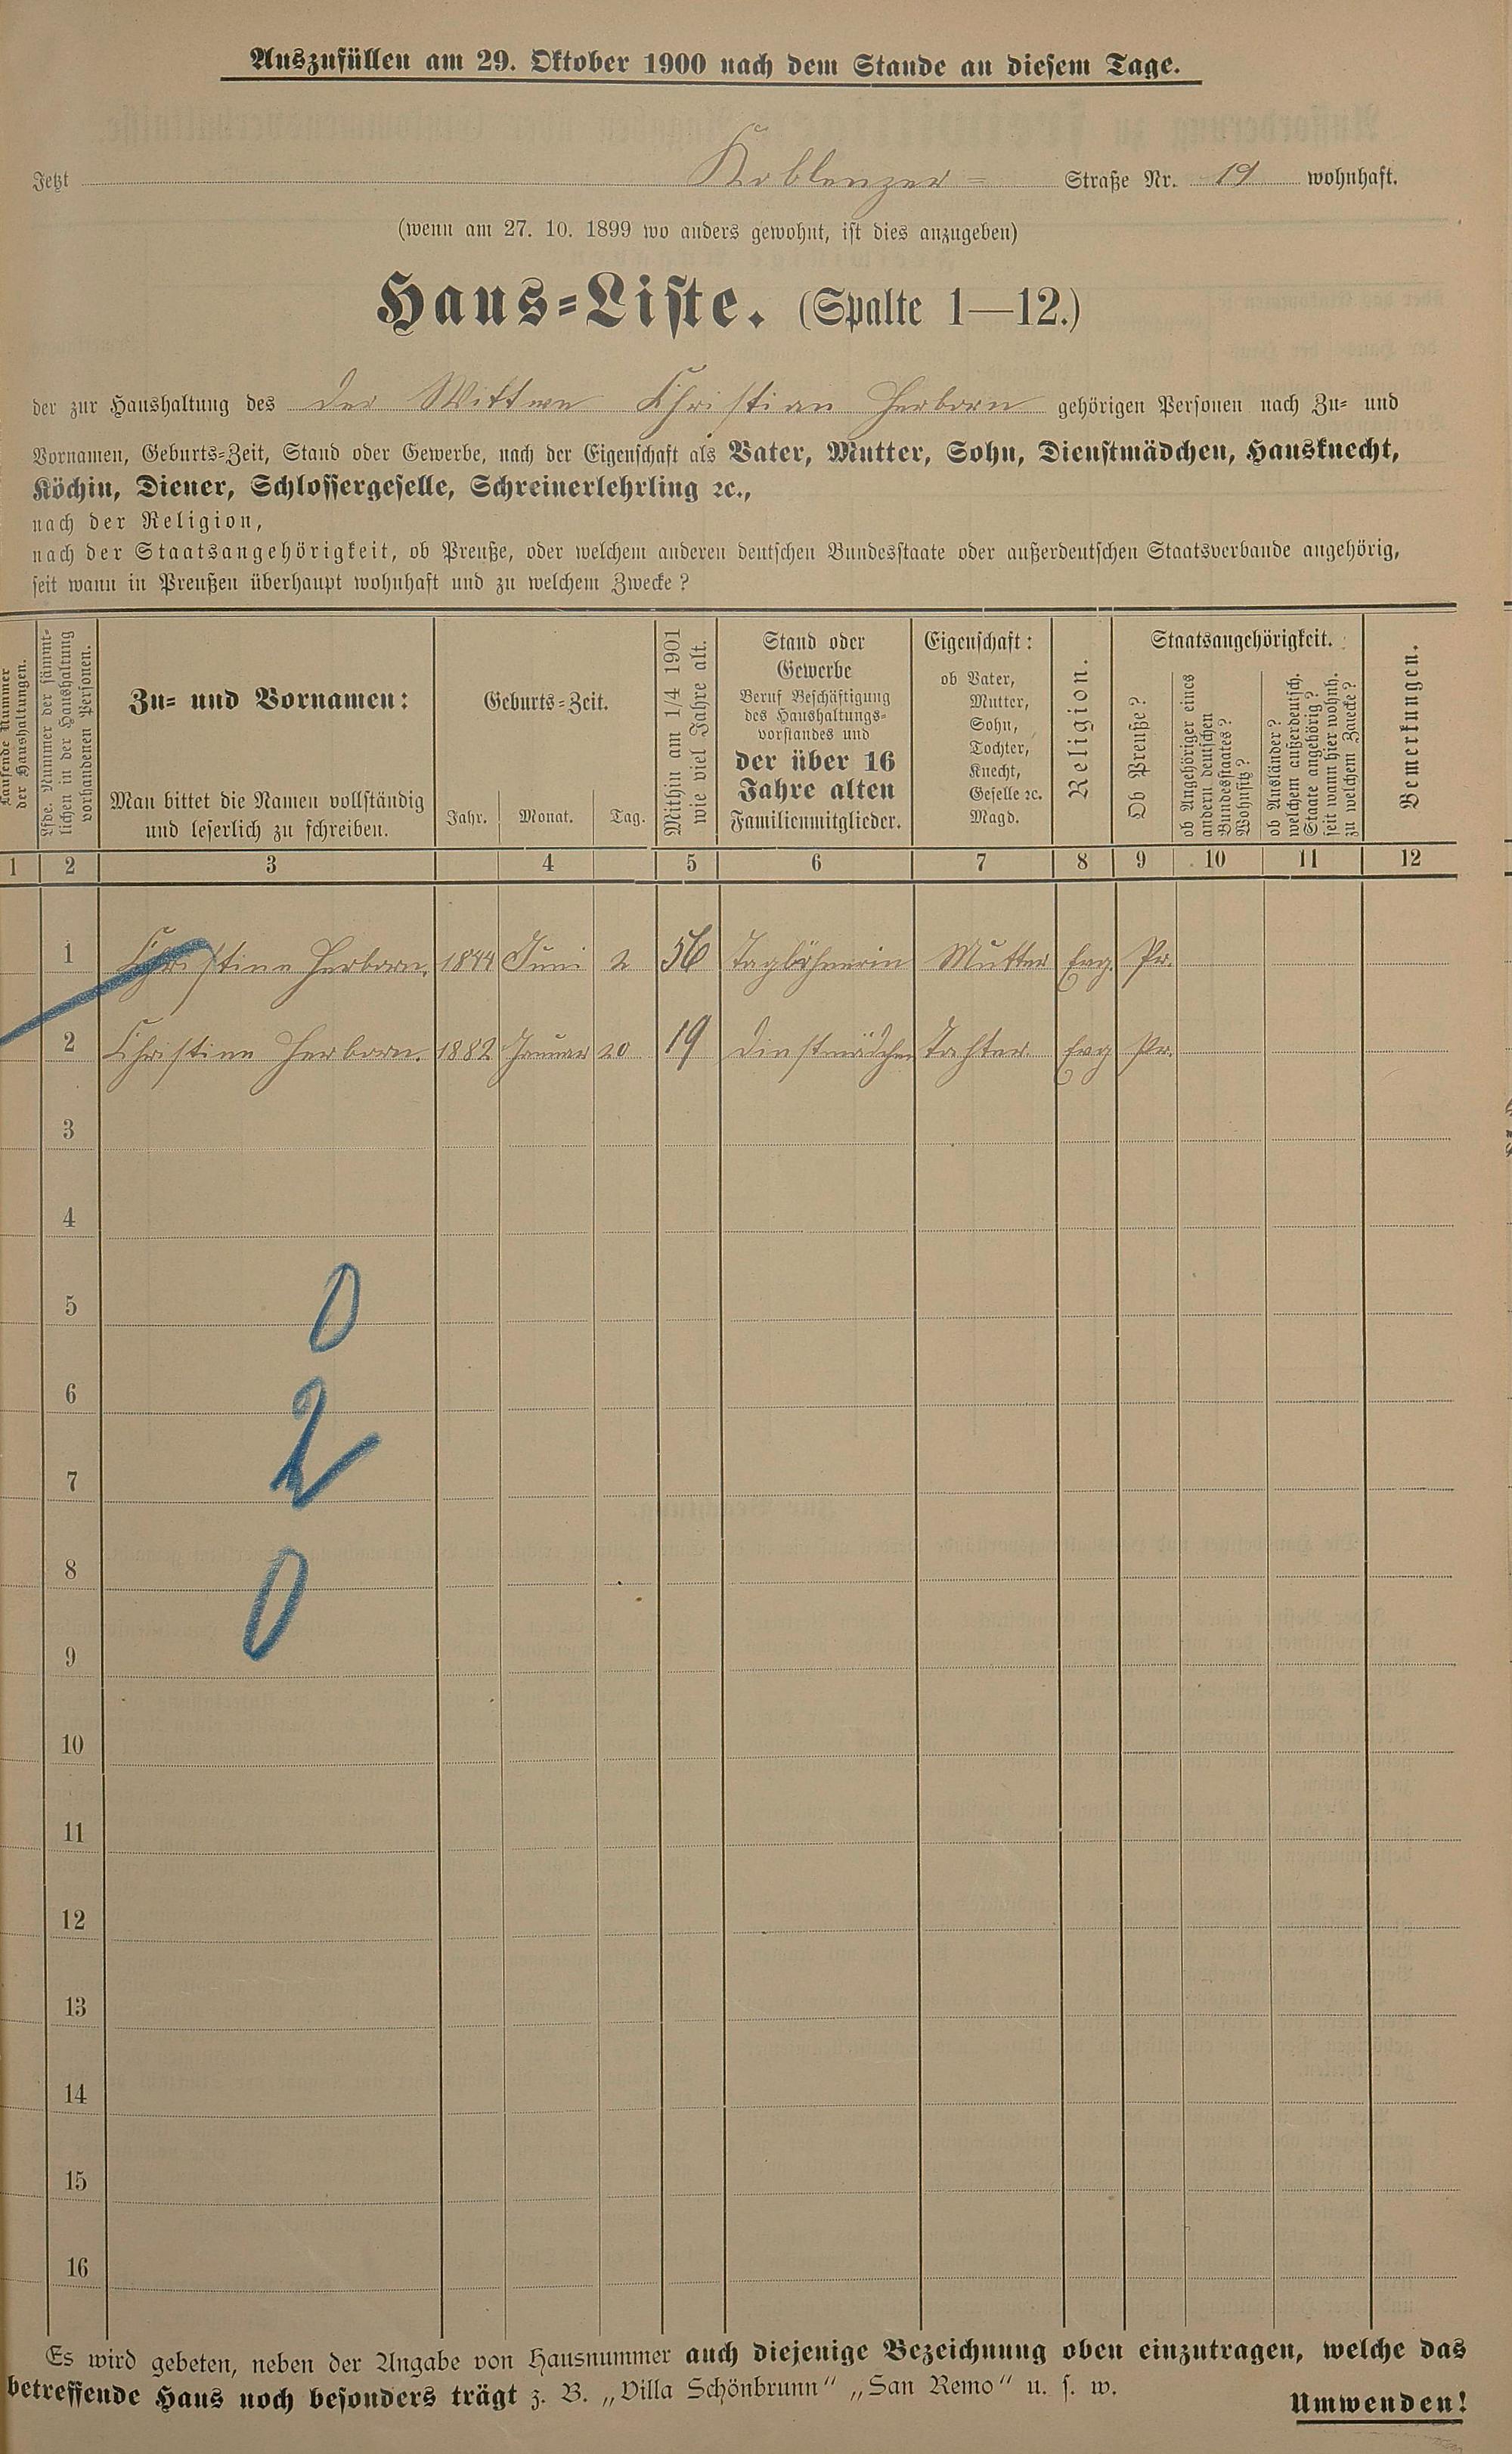 Auszufüllen am 29. Oktober 1900 nach dem Stande an diesem Tage.
Jetzt Koblenzer- Straße Nr. 19 wohnhaft.
(wenn am 27. 10. 1899 wo anders gewohnt, ist dies anzugeben)
Haus-Liste. (Spalte 1—12.)
der zur Haushaltung des der Wittwe Christian Herborn gehörigen Personen nach Zu- und
Vornamen, Geburts-Zeit, Stand oder Gewerbe, nach der Eigenschaft als Vater, Mutter, Sohn, Dienstmädchen, Hausknecht,
Köchin, Diener, Schlossergeselle, Schreinerlehrling ꝛc.,
nach der Religion,
nach der Staatsangehörigkeit, ob Preuße, oder welchem anderen deutschen Bundesstaate oder außerdeutschen Staatsverbande angehörig,
seit wann in Preußen überhaupt wohnhaft und zu welchem Zwecke?
Laufende Nummer
der Haushaltungen.
Lfde. Nummer der sämmt-
lichen in der Haushaltung
vorhandenen Personen.
Zu- und Vornamen:
Man bittet die Namen vollständig
und leserlich zu schreiben.
Geburts-Zeit.
Jahr. Monat. Tag.
Mithin am 1/4 1901
wie viel Jahre alt.
Stand oder
Gewerbe
Beruf Beschäftigung
des Haushaltungs-
vorstandes und
der über 16
Jahre alten
Familienmitglieder.
Eigenschaft:
ob Vater,
Mutter,
Sohn,
Tochter,
Knecht,
Geselle ꝛc.
Magd.
Religion.
Staatsangehörigkeit.
Ob Preuße?
ob Angehöriger eines
andern deutschen
Bundesstaates?
Wohnsitz?
ob Ausländer?
welchem außerdeutsch.
Staate angehörig?
seit wann hier wohnh.
zu welchem Zwecke?
Bemerkungen.
1 2 3 4 5 6 7 8 9 10 11 12
1 Christine Herborn. 1844 Juni 2 56 Taglöhnerin Mutter Evg. Pr.
2 Christine Herborn. 1882 Januar 20 19 Dinstmädchen Tochter. Evg Pr.
3
4
5
0
6
2
7
8
0
9
10
11
12
13
14
15
16
Es wird gebeten, neben der Angabe von Hausnummer auch diejenige Bezeichnung oben einzutragen, welche das
betreffende Haus noch besonders trägt z. B. „Villa Schönbrunn" „San Remo" u. s. w.
Umwenden!